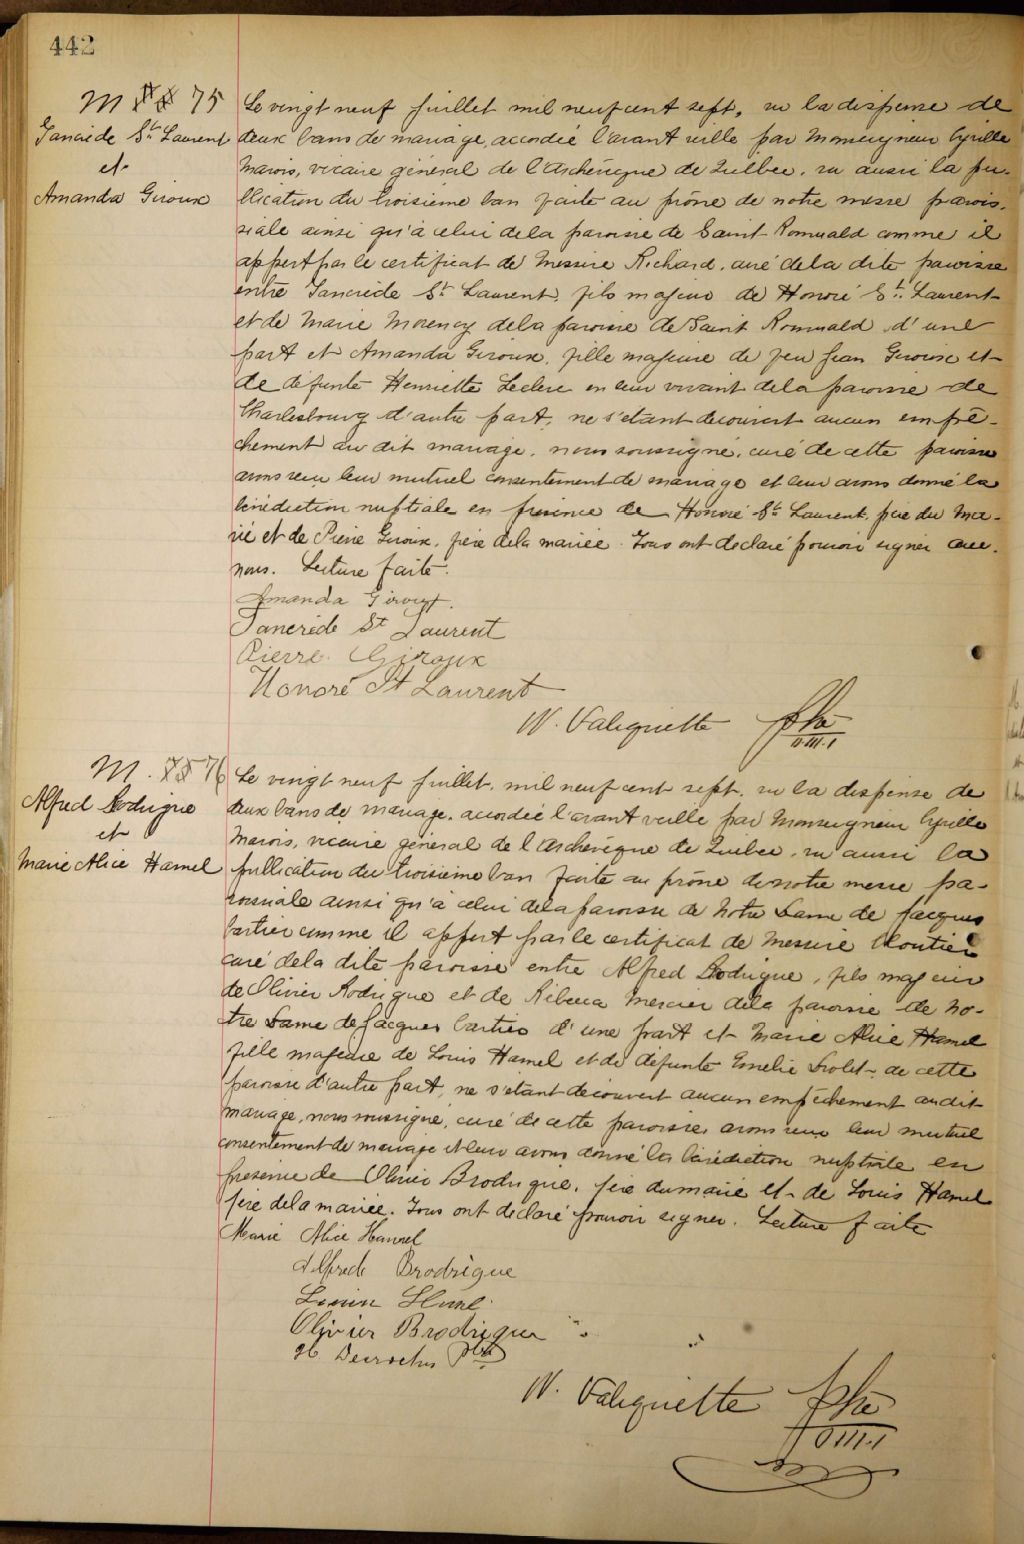 442
M 75
Tancrède St Laurent
et
Amanda Giroux
Le vingt neuf juillet mil neuf cent sept, vu la dispense de
deux bans de mariage, accordée l'avant veille par Monseigneur Cyrille
Marois, vicaire général de l'Archevêque de Québec, vu aussi la pu-
blication du troisième ban faite au prône de notre messe parois-
siale ainsi qu'à celui de la paroisse de Saint Romuald comme il
appert par le certificat de Messire Richard, curé de la dite paroisse
entre Tancrède St Laurent, fils majeur de Honoré St Laurent
et de Marie Morency de la paroisse de Saint Romuald d'une
part et Amanda Giroux, fille majeure de feu Jean Giroux et
de défunte Henriette Leclerc en leur vivant de la paroisse de
Charlesbourg d'autre part, ne s'étant découvert aucun empê-
chement au dit mariage, nous soussigné, curé de cette paroisse
avons reçu leur mutuel consentement de mariage et leur avons donné la
bénédiction nuptiale en présence de Honoré St Laurent, père du ma-
rié et de Pierre Giroux, frère de la mariée. Tous ont déclaré pouvoir signer avec
nous. Lecture faite.
Amanda Giroux.
Tancrède St Laurent
Pierre Giroux
Honoré St Laurent
N. Valiquette ptre
O.M.I
M. 76
Alfred Brodrigue
et
Marie Alice Hamel
Le vingt neuf juillet, mil neuf cent sept, vu la dispense de
deux bans de mariage, accordée l'avant veille par Monseigneur Cyrille
Marois, vicaire général de l'Archevêque de Québec, vu aussi la
publication du troisième ban faite au prône de notre messe pa-
roissiale ainsi qu'à celui de la paroisse de Notre Dame de Jacques
Cartier comme il appert par le certificat de Messire Cloutier
curé de la dite paroisse entre Alfred Brodrigue, fils majeur
de Olivier Rodrigue et de Rébecca Mercier de la paroisse de No-
tre Dame de Jacques Cartier d'une part et Marie Alice Hamel
fille majeure de Louis Hamel et de défunte Emélie Drolet de cette
paroisse d'autre part, ne s'étant découvert aucun empêchement au dit
mariage, nous soussigné, curé de cette paroisse, avons reçu leur mutuel
consentement de mariage et leur avons donné la bénédiction nuptiale en
présence de Olivier Brodrigue, père du marié et de Louis Hamel
père de la mariée. Tous ont déclaré pouvoir signer. Lecture faite
Marie Alice Hamel
Alfred Brodrigue
Olivier Brodrigue
Desroches Ptre
N. Valiquette ptre
O.M.I